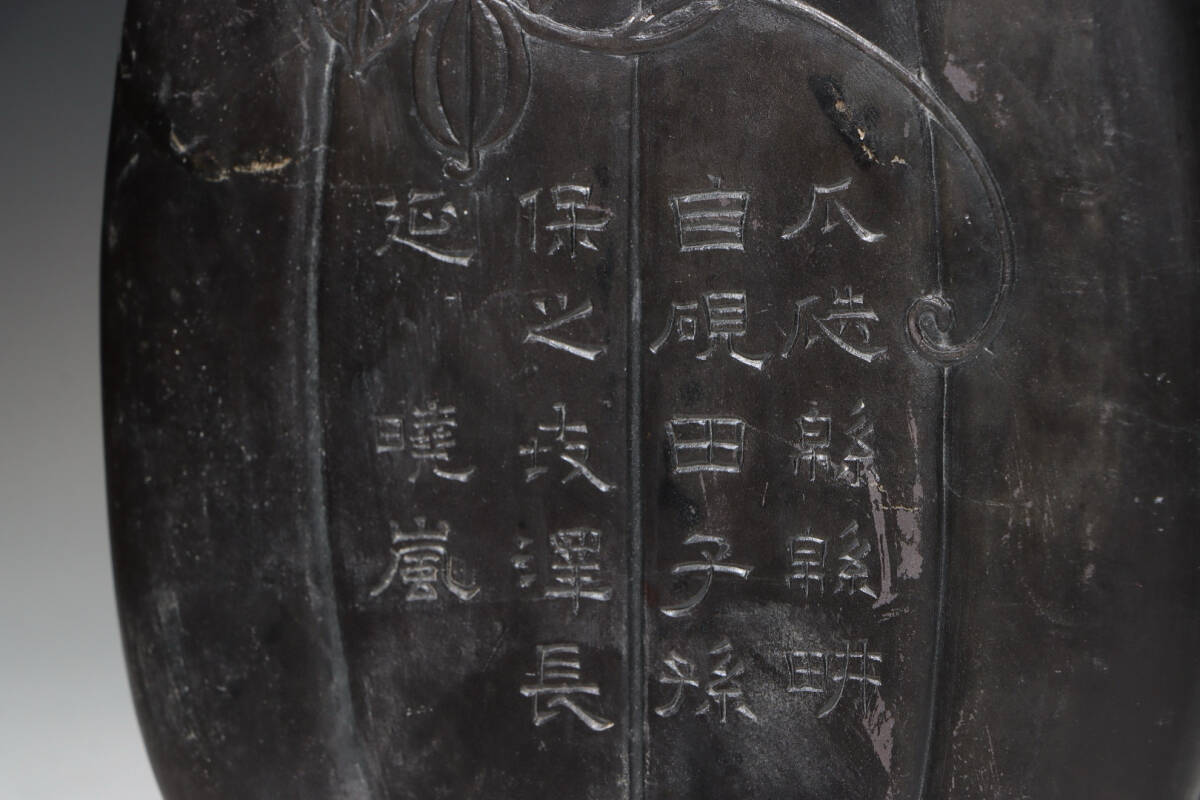 瓜瓞緜緜畊
自硯田子孫
保之澤長
延 曉嵐